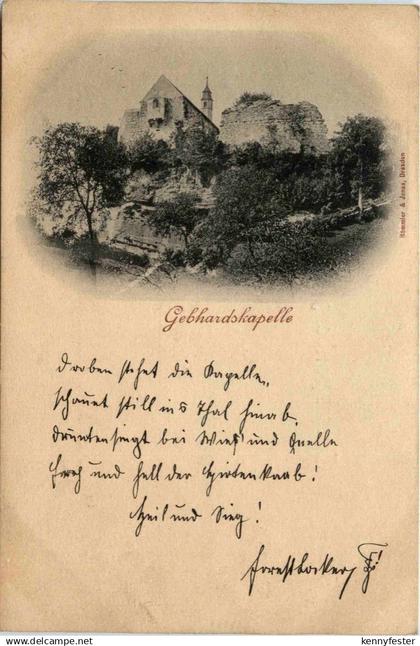 Römmler & Jonas, Dresden
Gebhardskapelle
Droben stehet die Kapelle,
schauet still ins Thal hinab,
Drunten singt bei Wies' und Quelle
Froh und hell der Hirtenknab!
Heil und Sieg!
www.delcampe.net
kennyfester